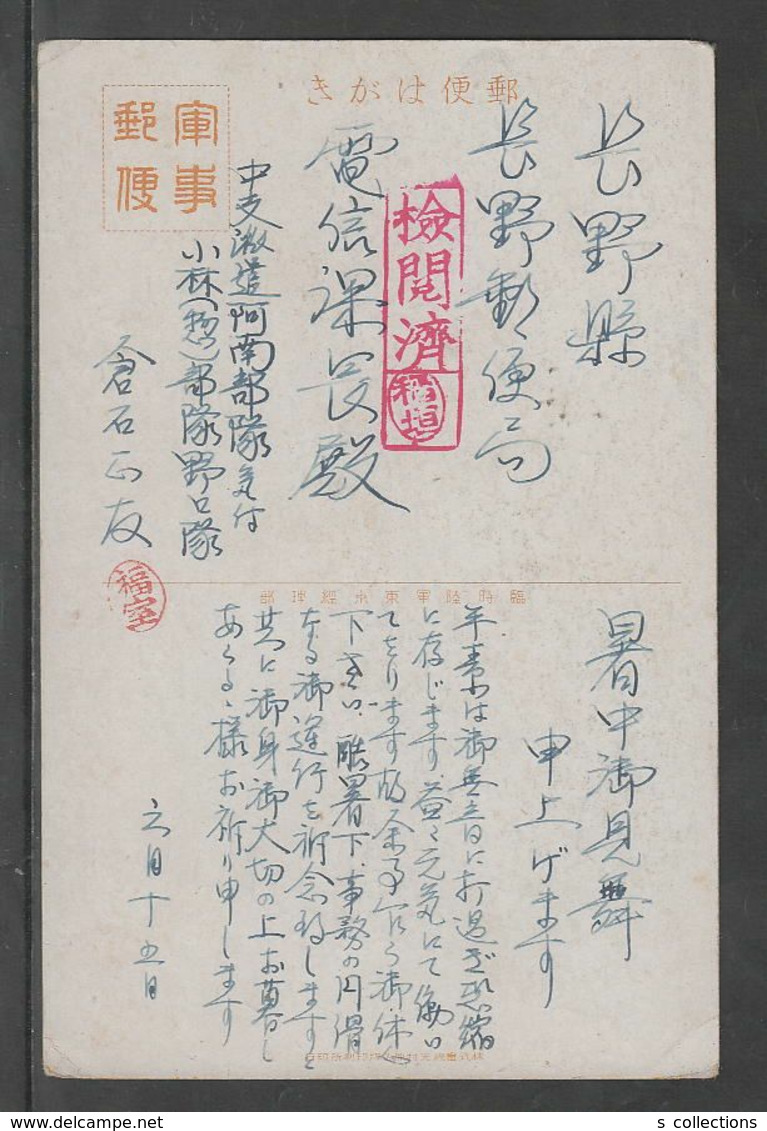 郵便はがき
軍事
郵便
長野縣
長野郵便局
電信課長殿
檢閲濟
稲垣
中支派遣阿南部隊気付
小林(惣)部隊野口隊
倉石正友
福室
臨時陸軍東京經理部
暑中御見舞
申上げます
平素は御無音に打過ぎ恐縮
に存じます、益々元気にて働い
てをります故余事乍ら御休心
下さい、酷暑下、事務の円滑
なる御運行を祈念致しますと
共に御身御大切の上お暮し
あらるゝ様お祈り申します
六月十五日
s collections